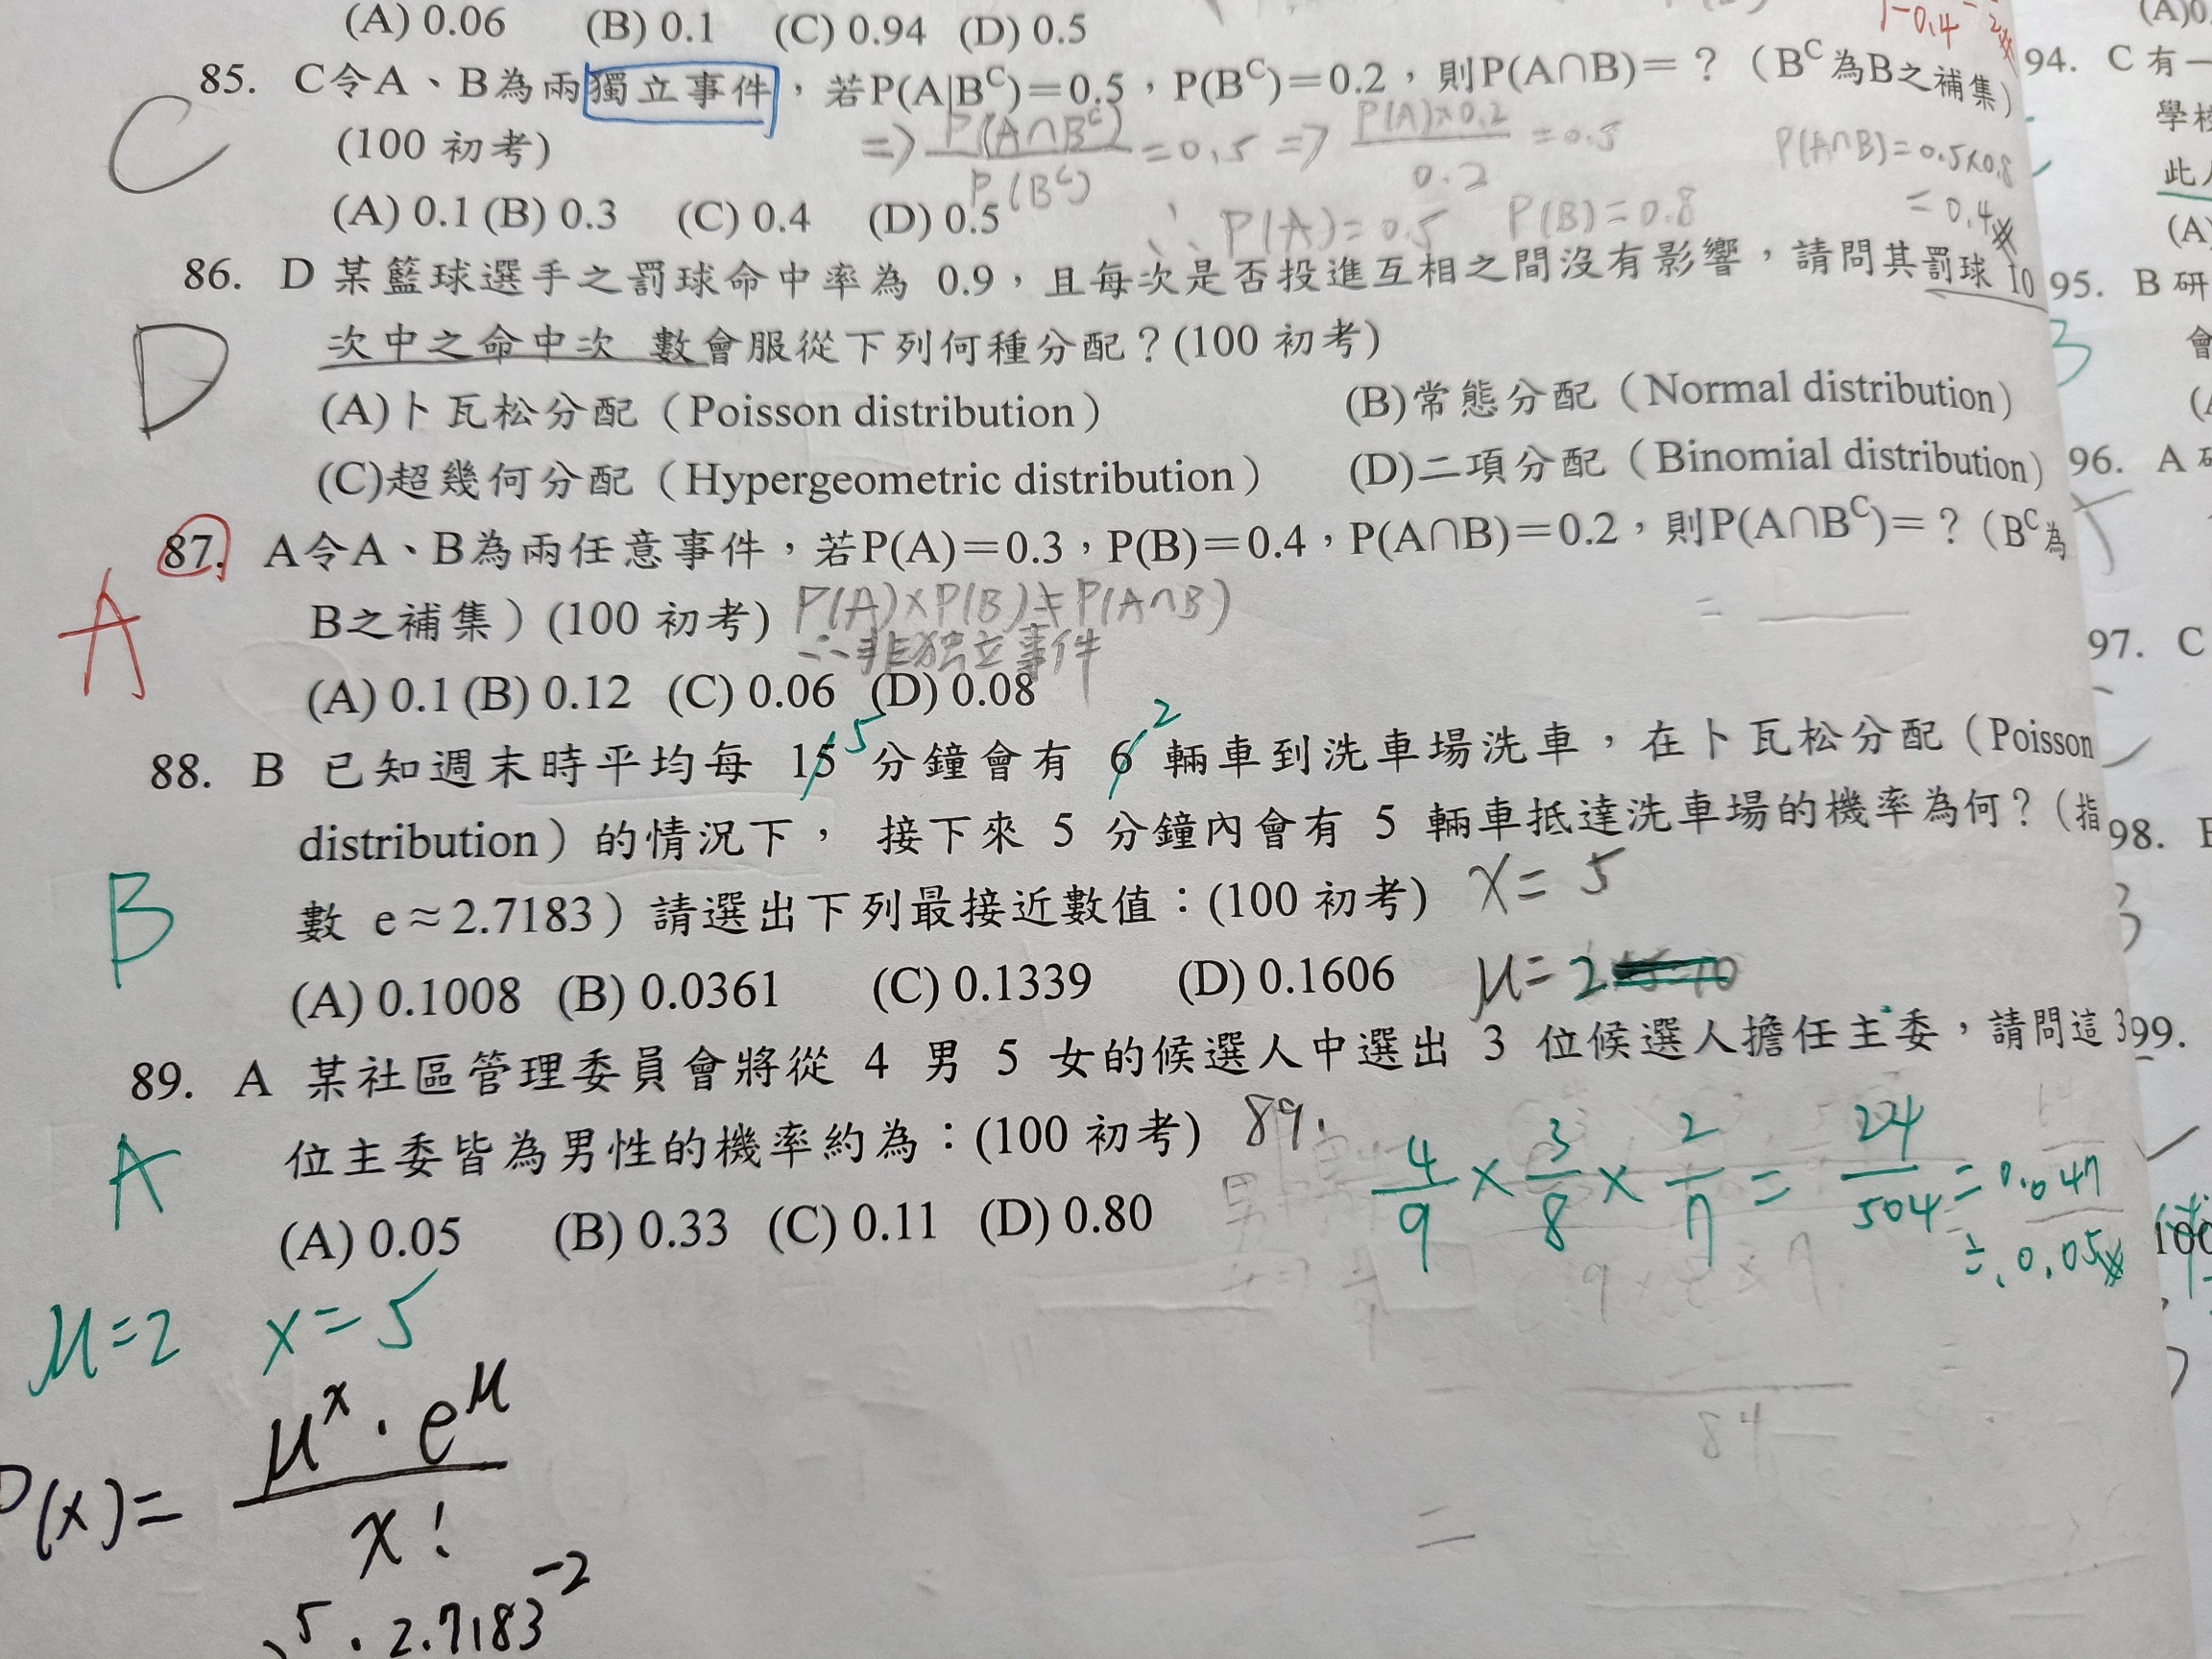 (A) 0.06 (B) 0.1 (C) 0.94 (D) 0.5
1-0.4
85. C令A、B為兩獨立事件，若P(A|B^C)＝0.5，P(B^C)＝0.2，則P(A∩B)＝？（B^C為B之補集）
C
(100 初考)
=> P(A∩B^C) / P(B^C) = 0.5 => P(A)×0.2 / 0.2 = 0.5
P(A∩B)=0.5×0.8
= 0.4
(A) 0.1 (B) 0.3 (C) 0.4 (D) 0.5
∴ P(A)=0.5 P(B)=0.8
86. D 某籃球選手之罰球命中率為 0.9，且每次是否投進互相之間沒有影響，請問其罰球 10
次中之命中次 數會服從下列何種分配？(100 初考)
D
(A)卜瓦松分配（Poisson distribution） (B)常態分配（Normal distribution）
(C)超幾何分配（Hypergeometric distribution） (D)二項分配（Binomial distribution）
87. A令A、B為兩任意事件，若P(A)＝0.3，P(B)＝0.4，P(A∩B)＝0.2，則P(A∩B^C)＝？（B^C為
A
B之補集）(100 初考) P(A)×P(B)≠P(A∩B)
∴非独立事件
=
(A) 0.1 (B) 0.12 (C) 0.06 (D) 0.08
5 2
88. B 已知週末時平均每 15 分鐘會有 6 輛車到洗車場洗車，在卜瓦松分配（Poisson
distribution）的情況下， 接下來 5 分鐘內會有 5 輛車抵達洗車場的機率為何？（指
B
數 e≈2.7183）請選出下列最接近數值：(100 初考) x = 5
(A) 0.1008 (B) 0.0361 (C) 0.1339 (D) 0.1606 μ= 2
89. A 某社區管理委員會將從 4 男 5 女的候選人中選出 3 位候選人擔任主委，請問這 3
位主委皆為男性的機率約為：(100 初考) 89.
A
4/9 × 3/8 × 2/7 = 24/504 = 0.047
≒ 0.05
男
(A) 0.05 (B) 0.33 (C) 0.11 (D) 0.80
84
μ=2 x=5
P(x)= μ^x · e^μ / x!
5 · 2.7183^-2
(A)0
94. C 有一
學校
此
(A)
95. B 研
B
會
96. A
97. C
98.
99.
100